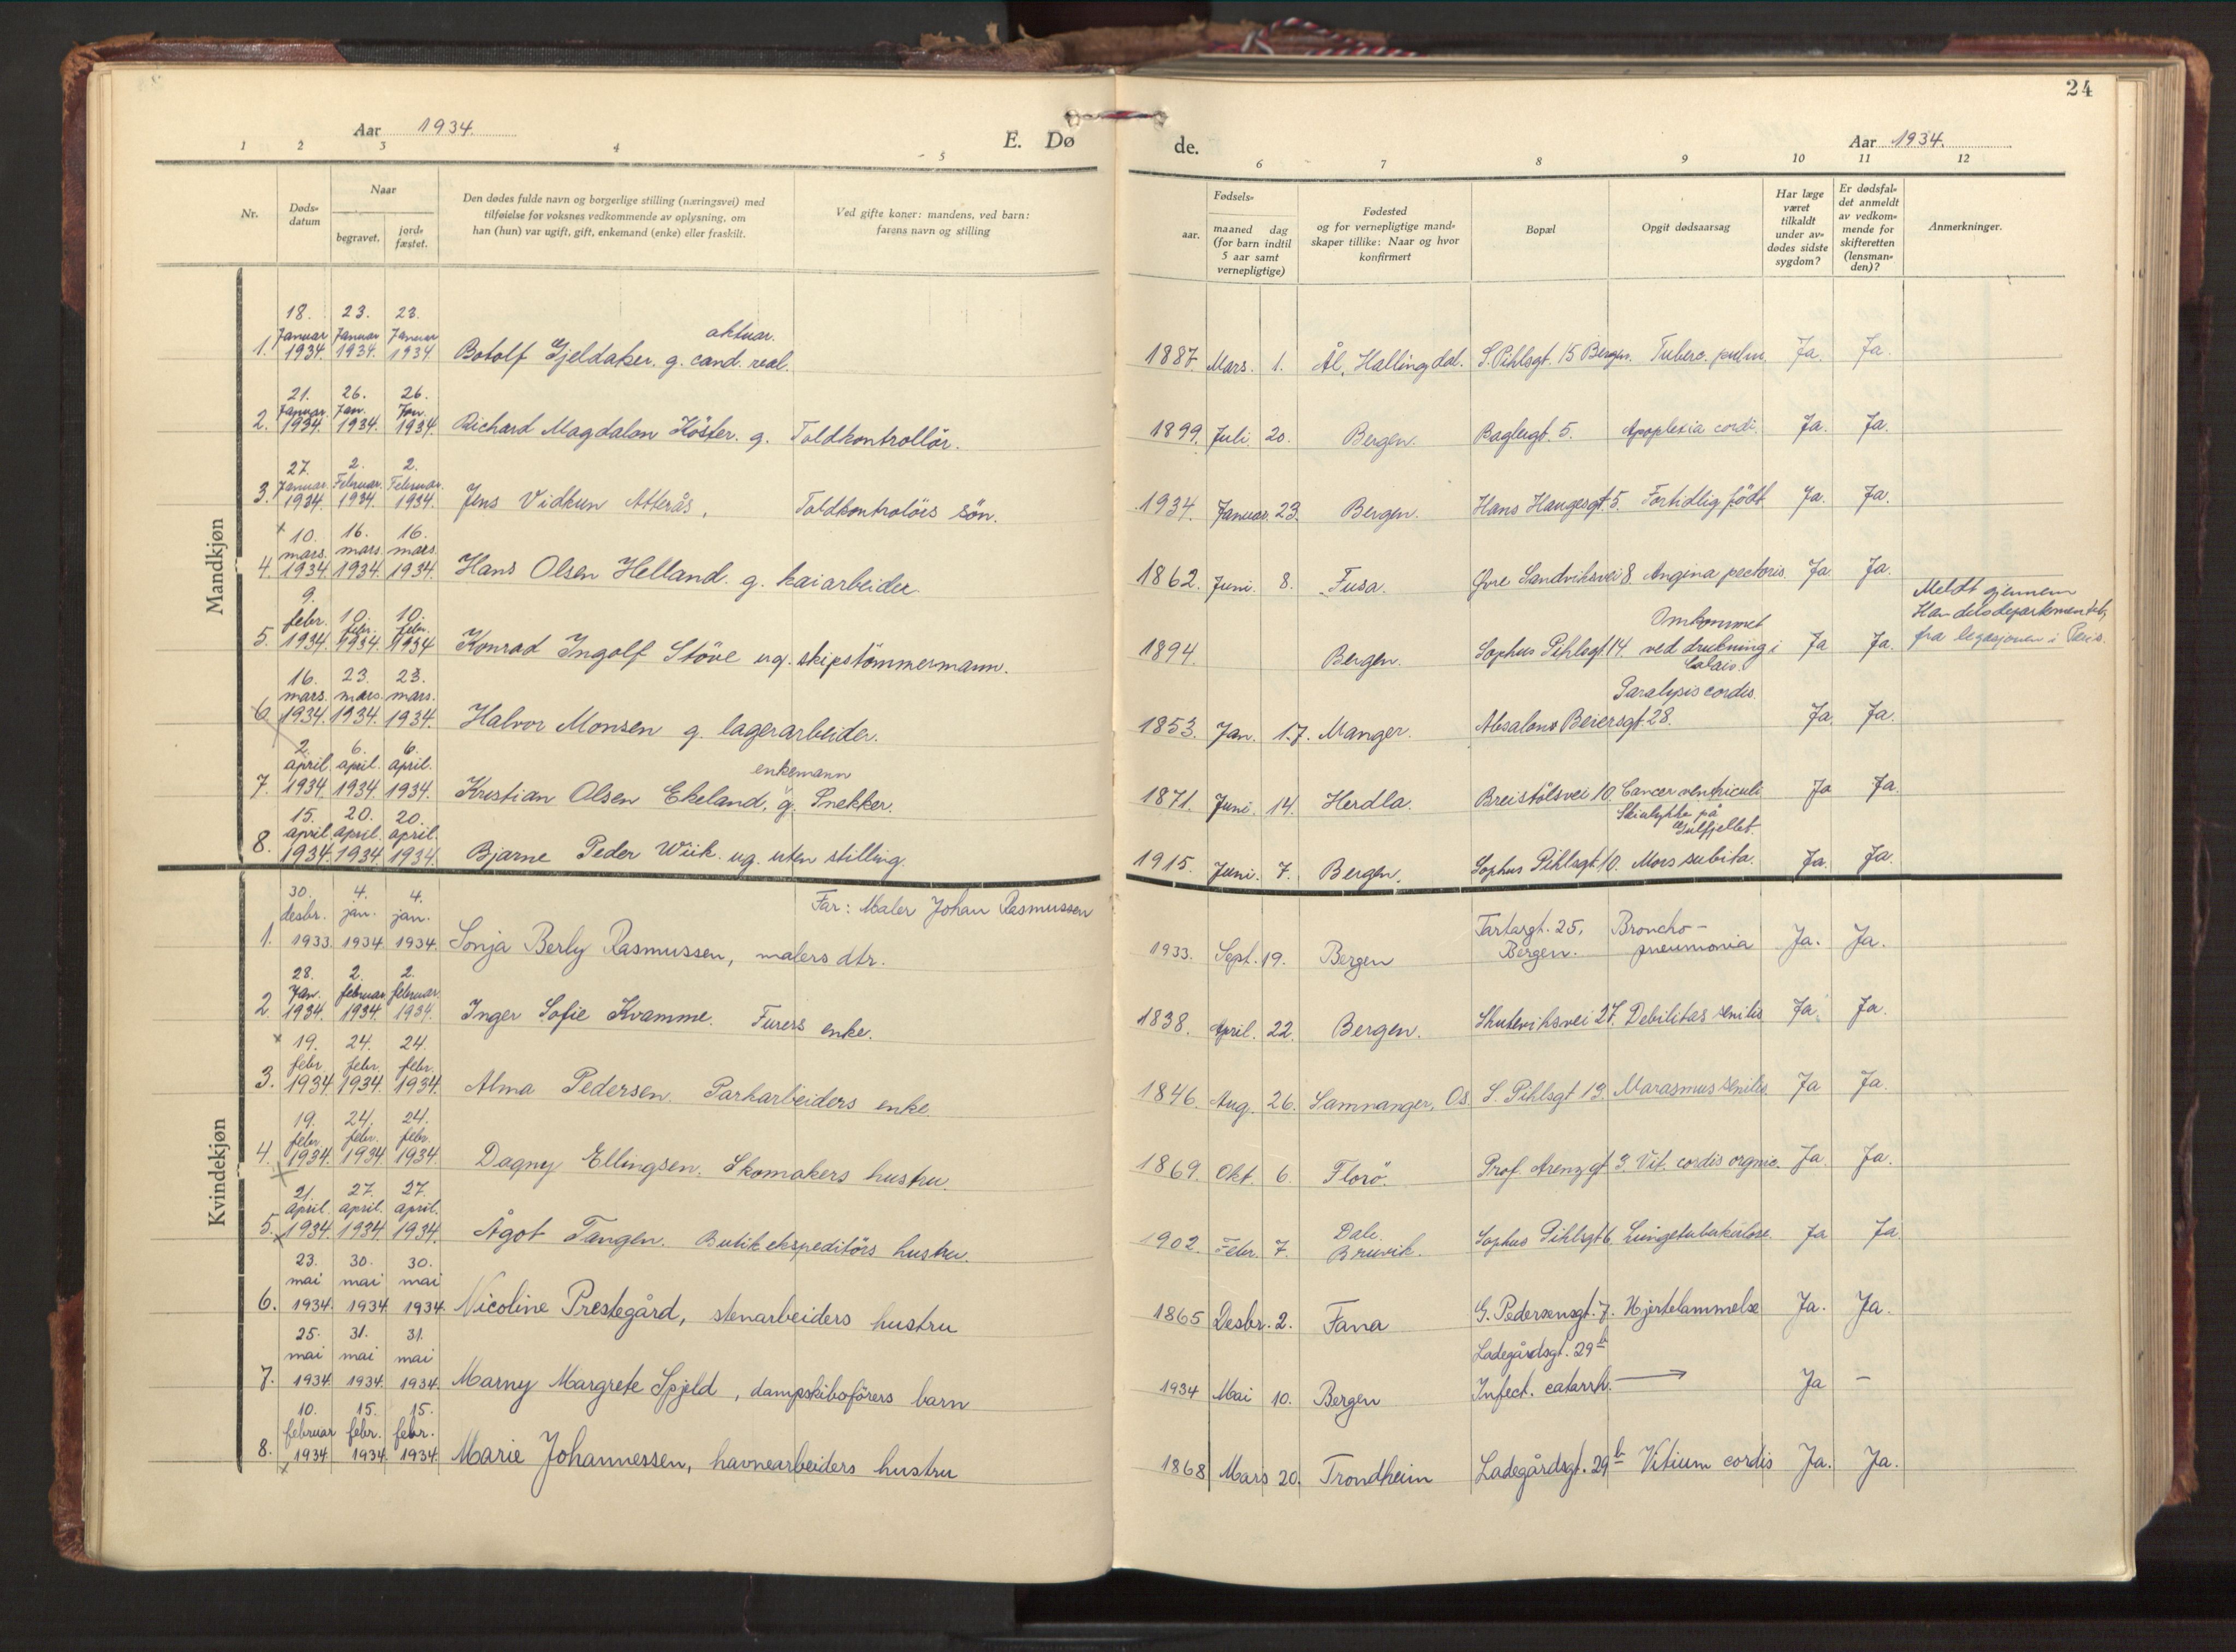 24
Aar 1934.
E. Dø
de.
Aar 1934.
1 2 3 4 5 6 7 8 9 10 11 12
Nr.
Døds-
datum
Naar
begravet.
jord-
fæstet.
Den dødes fulde navn og borgerlige stilling (næringsvei) med
tilføielse for voksnes vedkommende av oplysning, om
han (hun) var ugift, gift, enkemand (enke) eller fraskilt.
Ved gifte koner: mandens, ved barn:
farens navn og stilling
Fødsels-
aar.
maaned dag
(for barn indtil
5 aar samt
vernepligtige)
Fødested
og for vernepligtige mand-
skaper tillike: Naar og hvor
konfirmert
Bopæl
Opgit dødsaarsag
Har læge
været
tilkaldt
under av-
dødes sidste
sygdom?
Er dødsfal-
det anmeldt
av vedkom-
mende for
skifteretten
(lensman-
den)?
Anmerkninger.
Mandkjøn
18. 23. 23.
Januar Januar Januar aktuar.
1. 1934. 1934. 1934 Botolf Gjeldaker. g. cand. real. 1887. Mars. 1. Ål, Hallingdal. S. Pihlsgt. 15 Bergen. Tuberc. pulm. Ja. Ja.
21. 26. 26.
Januar. Jan. Jan.
2. 1934. 1934. 1934. Richard Magdalon Köster. g. Toldkontrollör. 1899. Juli. 20. Bergen. Baglergt. 5. Apoplexia cordi. Ja. Ja.
27. 2. 2.
Januar. Februar. Februar.
3. 1934. 1934. 1934. Jens Vidkun Atterås, Toldkontrolörs sön. 1934. Januar. 23. Bergen. Hans Haugesgt. 5. Fortidlig födt Ja. Ja.
+ 10. 16. 16.
mars. mars. mars.
4. 1934. 1934. 1934. Hans Olsen Helland. g. kaiarbeider. 1862. Juni. 8. Fusa. Øvre Sandviksvei 8. Angina pectoris. Ja. Ja.
9. 10. 10. Omkommet Meldt gjennem
febr. febr. febr. Handelsdepartementet,
5. 1934. 1934. 1934 Konrad Ingolf Støve ug. skipstömmermann. 1894. Bergen. Sophus Pihlsgt. 14. ved drukning i Ja Ja. fra legasjonen i Paris.
Calais.
16. 23. 23.
mars. mars. mars. Paralysis cordis.
6. 1934. 1934. 1934. Halvor Monsen g. lagerarbeider. 1853. Jan. 17. Manger. Absalons Beiersgt. 28. Ja. Ja.
2. 6. 6.
april. april. april. enkemann
7. 1934. 1934. 1934. Kristian Olsen Ekeland, g. Snekker. 1871. Juni. 14. Herdla. Breistölsvei 10. Cancer ventriculi Ja Ja.
15. 20. 20. Skiulykke på
april april. april. Gulfjellet.
8. 1934. 1934. 1934. Bjarne Peder Wiik. ug. uten stilling. 1915. Juni. 7. Bergen. Sophus Pihlsgt. 10. Mors subita. Ja. Ja.
Kvindekjøn
30. 4. 4. Far: Maler Johan Rasmussen
desbr. jan. jan. Tartargt. 25, Broncho-
1. 1933. 1934. 1934. Sonja Berly Rasmussen, malers dtr. 1933. Sept. 19. Bergen Bergen. pneumonia Ja. Ja.
28. 2. 2.
Jan. februar februar.
2. 1934. 1934. 1934. Inger Sofie Kvamme. Furers enke. 1838. April. 22. Bergen. Skuteviksvei 27. Debilitas senilis Ja. Ja.
+ 19. 24. 24.
febr. febr. febr.
3. 1934 1934. 1934. Alma Pedersen. Parkarbeiders enke. 1846. Aug. 26. Samnanger, Os. S. Pihlsgt 19. Marasmus senilis. Ja Ja.
19. 24. 24.
febr. febr. febr.
4. 1934. 1934 1934. Dagny Ellingsen. Skomakers hustru. 1869. Okt. 6. Florö. Prof. Arenzgt 3. Vit. cordis orgnic. Ja. Ja.
21. 27. 27.
april. april. april. Dale.
5. 1934. 1934 1934. Ågot Tangen. Butikekspeditörs hustru. 1902. Febr. 7. Bruvik. Sophus Pihlsgt 6. Lungetuberkulose Ja Ja
23. 30. 30.
mai mai mai
6. 1934. 1934 1934. Nicoline Prestegård, stenarbeiders hustru 1865 Desbr. 2. Fana G. Pedersensgt. 7. Hjertelammelse Ja. Ja.
25. 31. 31. Ladegårdsgt. 29 b
mai mai mai
7. 1934. 1934. 1934. Marny Margrete Spjeld, dampskibsförers barn 1934 Mai 10. Bergen Infect. catarrh. → Ja —
10. 15. 15.
februar febr. febr.
8. 1934 1934. 1934. Marie Johannessen, havnearbeiders hustru 1868 Mars 20. Trondheim Ladegårdsgt. 29 b Vitium cordis Ja. Ja.